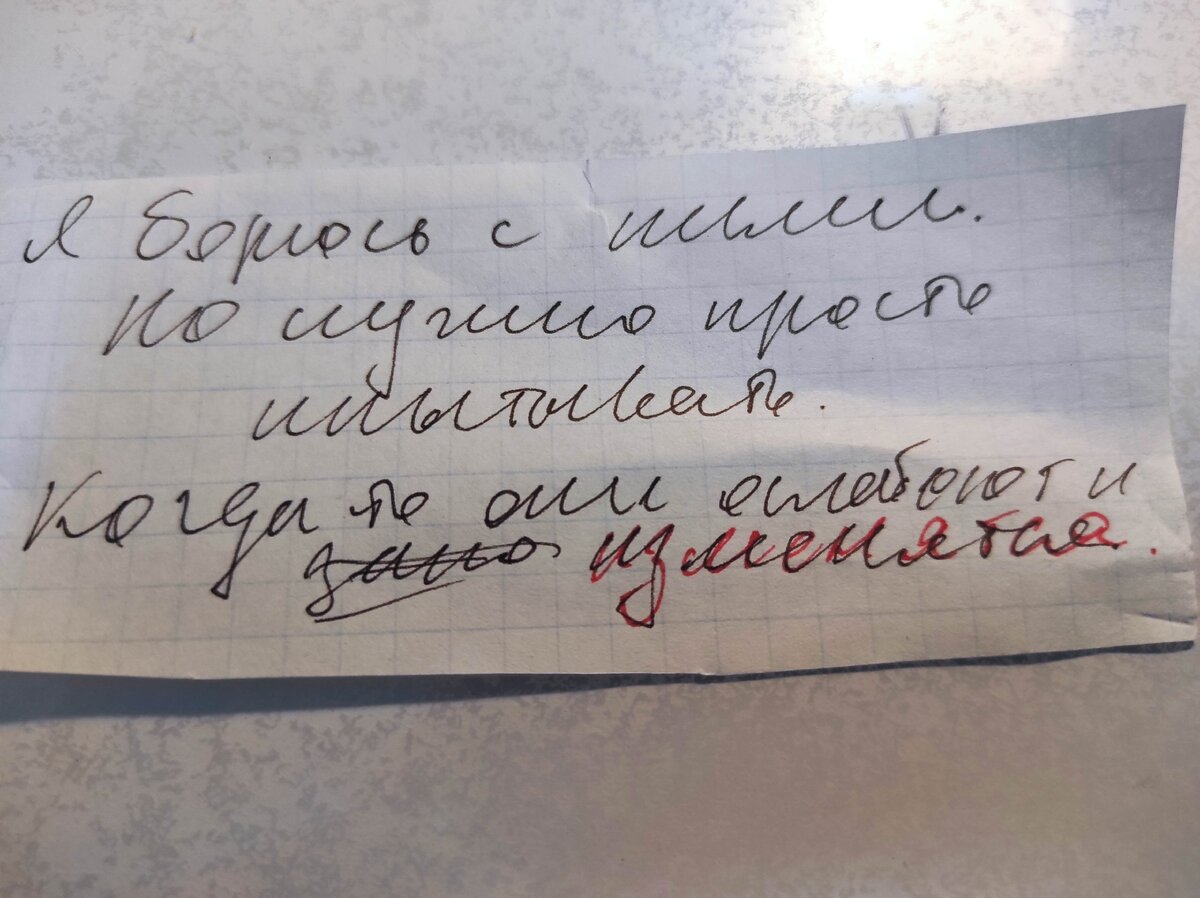 Я борюсь с ними.
Но нужно просто
испытывать.
Когда то они ослабеют и
изменятся.